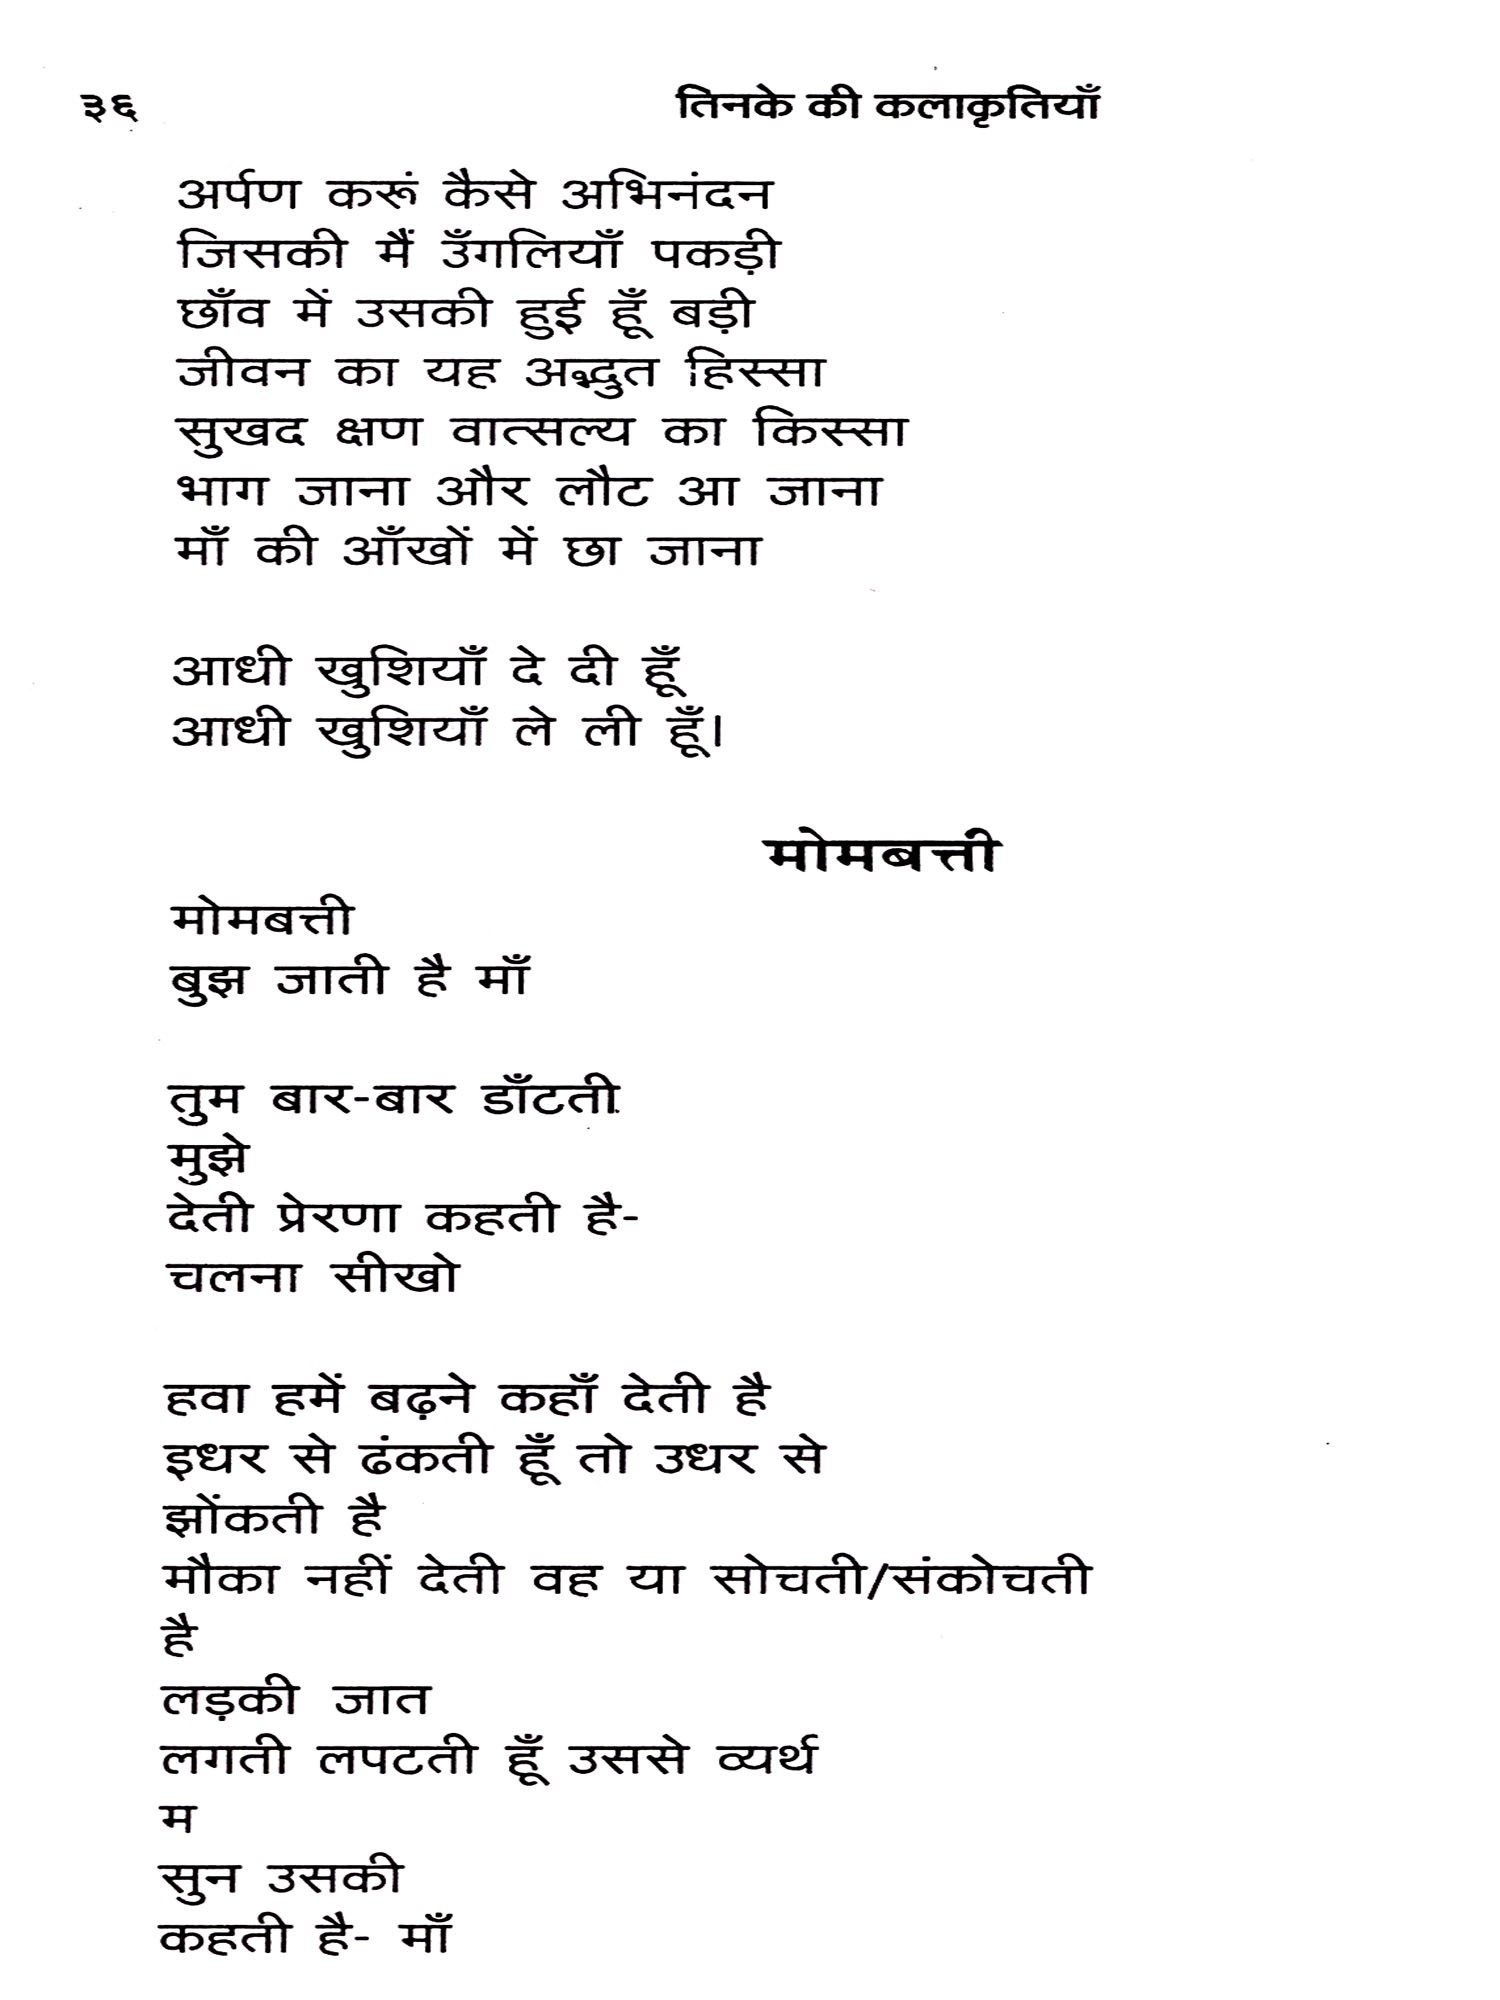 ३६ तिनके की कलाकृतियाँ
अर्पण करूं कैसे अभिनंदन
जिसकी मैं उँगलियाँ पकड़ी
छाँव में उसकी हुई हूँ बड़ी
जीवन का यह अद्भुत हिस्सा
सुखद क्षण वात्सल्य का किस्सा
भाग जाना और लौट आ जाना
माँ की आँखों में छा जाना
आधी खुशियाँ दे दी हूँ
आधी खुशियाँ ले ली हूँ।
मोमबत्ती
मोमबत्ती
बुझ जाती है माँ
तुम बार-बार डाँटती
मुझे
देती प्रेरणा कहती है-
चलना सीखो
हवा हमें बढ़ने कहाँ देती है
इधर से ढंकती हूँ तो उधर से
झोंकती है
मौका नहीं देती वह या सोचती/संकोचती
है
लड़की जात
लगती लपटती हूँ उससे व्यर्थ
म
सुन उसकी
कहती है- माँ